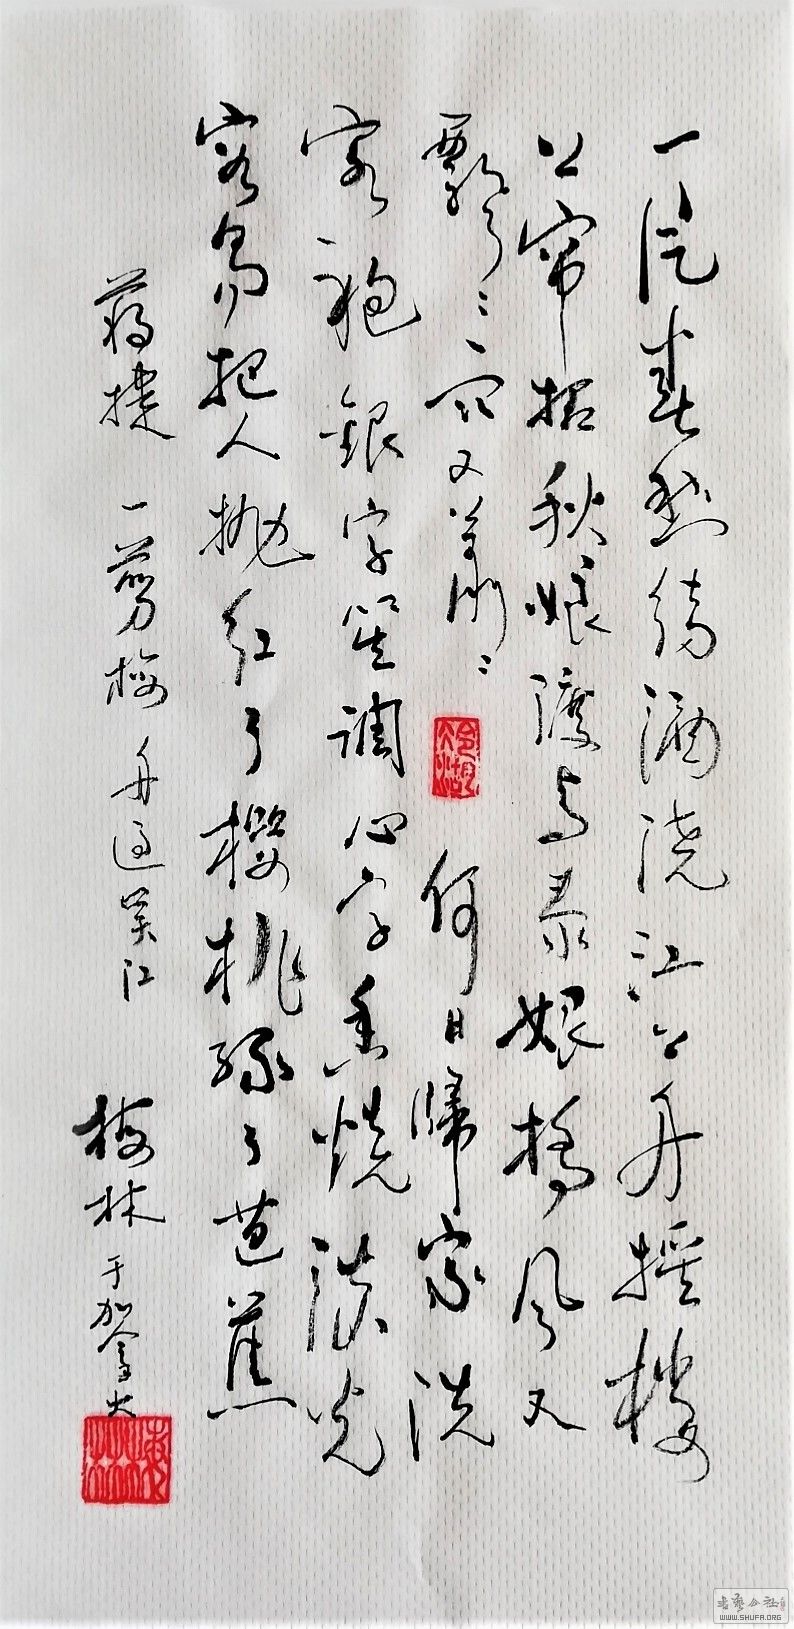 一片春愁待酒浇江上舟摇楼
上帘招秋娘渡与泰娘橋风又
飘〻雨又萧〻 何日歸家洗
客袍銀字笙調心字香燒流光
容易把人抛红了樱桃绿了芭蕉
蒋捷 一剪梅 舟过吴江 梅林 于加拿大
书艺公社
WWW.SHUFA.ORG